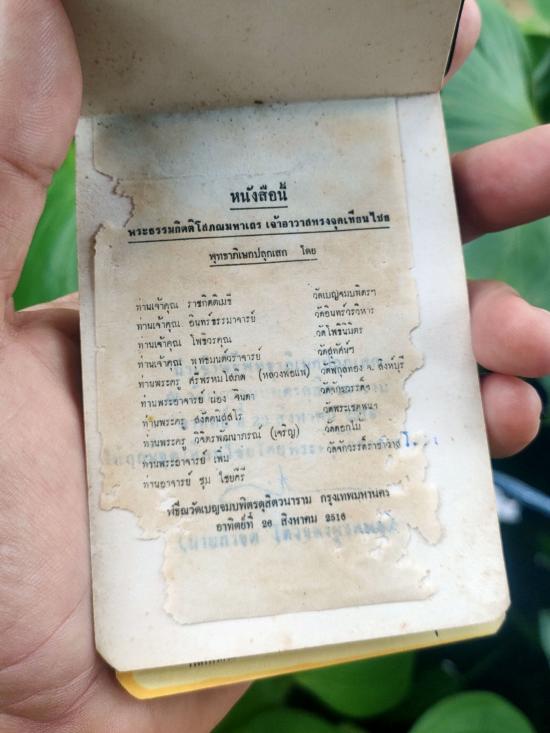 หนังสือนี้
พระธรรมกิตติโสภณมหาเถร เจ้าอาวาสทรงจุดเทียนไชย
พุทธาภิเษกปลุกเสก โดย
ท่านเจ้าคุณ ราชกิตติเมธี วัดเบญจมบพิตรฯ
ท่านเจ้าคุณ อินทร์ธรรมาจารย์ วัดอินทรวิหาร
ท่านเจ้าคุณ โพธิวรคุณ วัดโพธินิมิตร
ท่านเจ้าคุณ พุทธมนต์วราจารย์ วัดสุทัศน์ฯ
ท่านพระครู ศรีพรหมโสภิต (หลวงพ่อแพ) วัดพิกุลทอง จ. สิงห์บุรี
ท่านพระอาจารย์ ผ่อง จินดา วัดจักรวรรดิ์ฯ
ท่านพระครู วัดพระเชตุพน
ท่านพระครู วิจิตรพัฒนาภรณ์ (เจริญ) วัดดอกไม้
ท่านพระอาจารย์ เพิ่ม วัดจักรวรรดิ์ราชาวาส
ท่านอาจารย์ ชุม ไชยคีรี
พิธีณวัดเบญจมบพิตรดุสิตวนาราม กรุงเทพมหานคร
อาทิตย์ที่ 26 สิงหาคม 2516